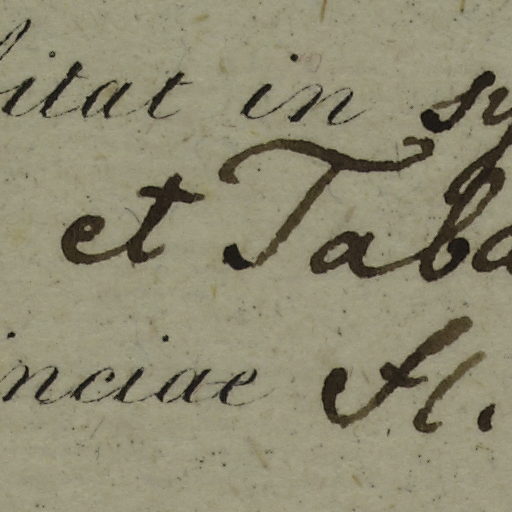 itat in sy
et Taba
inciae Fl.